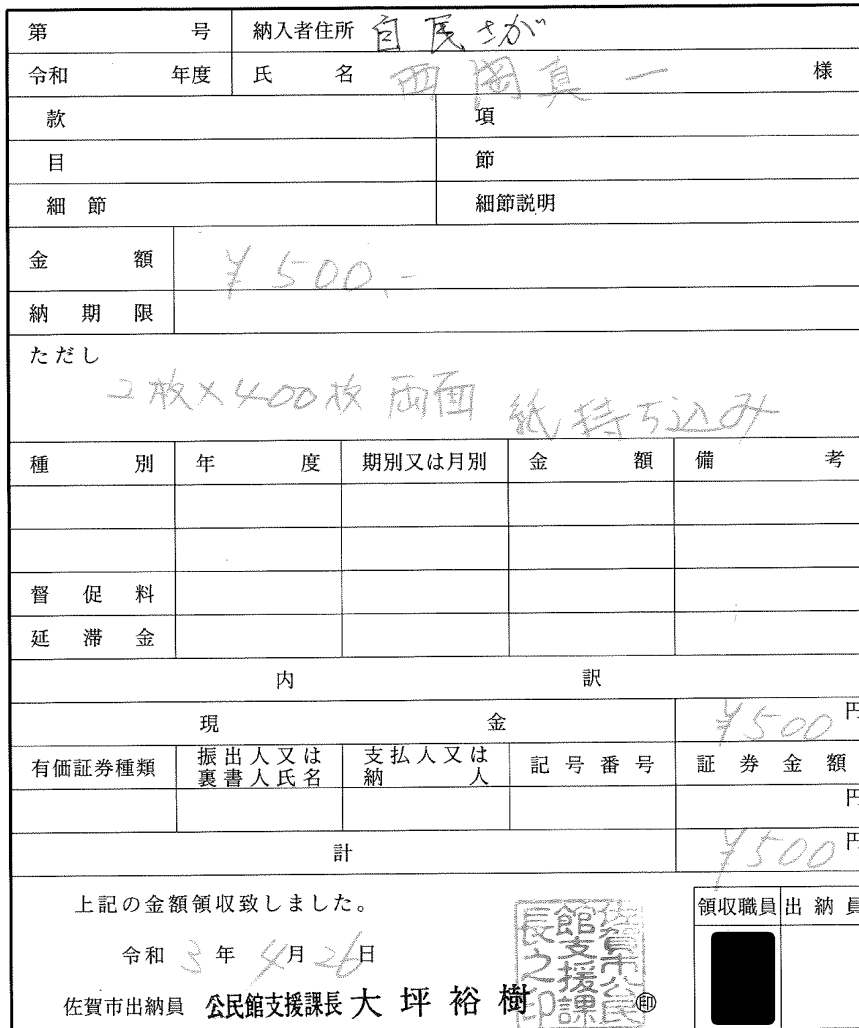 第 号 納入者住所 自民さが
令和 年度 氏 名 西岡真一 様
款 項
目 節
細 節 細節説明
金 額 ¥500.-
納 期 限
ただし
2枚×400枚 両面 紙持ち込み
種 別 年 度 期別又は月別 金 額 備 考
督 促 料
延 滞 金
内 訳
現 金 ¥500 円
有価証券種類 振出人又は裏書人氏名 支払人又は納人 記号番号 証券金額
円
計 ¥500 円
上記の金額領収致しました。
領収職員 出納員
令和 3 年 4月 26日
佐賀市出納員 公民館支援課長 大坪裕樹 印
佐賀市公民館支援課長之印